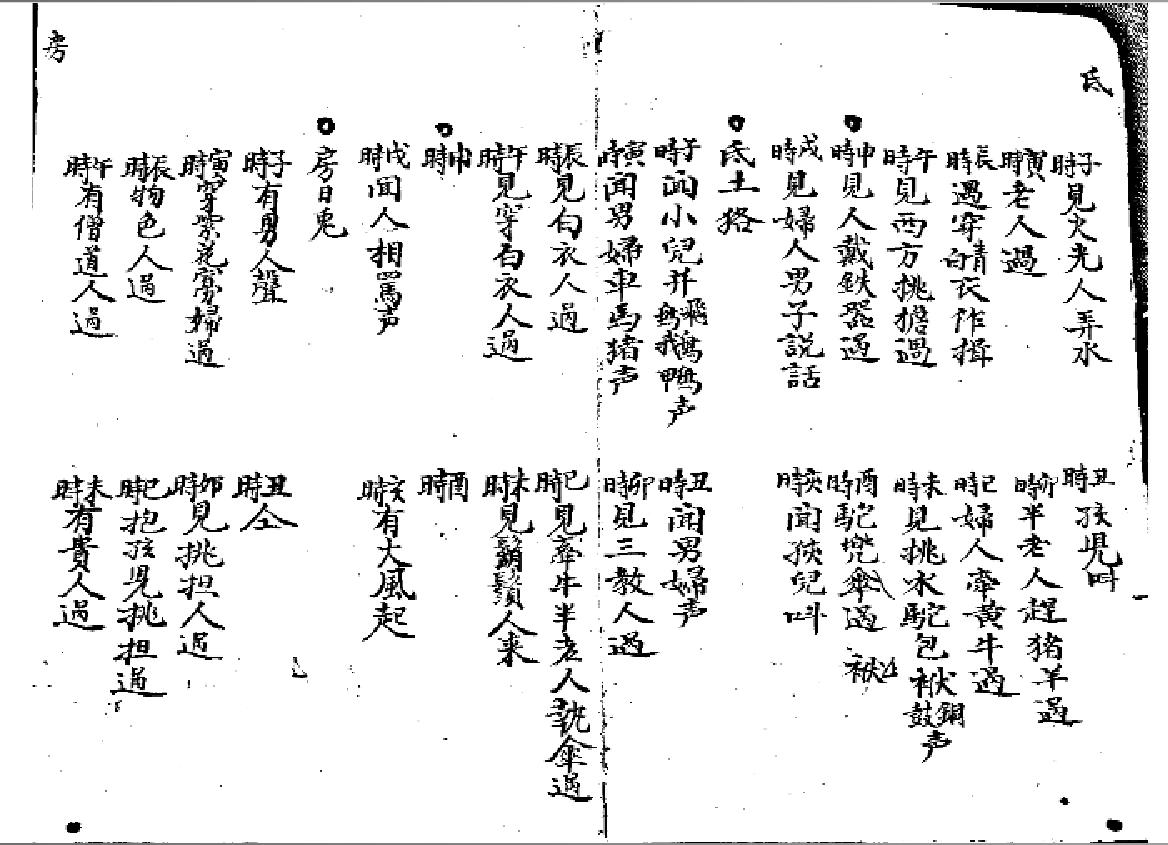 氐
子時見火光人弄水
丑時孩児叫
寅時老人過
卯時半老人趕豬羊過
辰時遇穿青白衣作揖
巳時婦人牽黃牛過
午時見西方挑擔過
未時見挑水駝包袱銅鼓声
申時見人戴鉄器過
酉時駝兜傘過
袱
戌時見婦人男子説話
亥時聞孩兒叫
氐土狢
子時聞小兒并飛鳥鵝鴨声
丑時聞男婦声
寅時聞男婦車馬猪声
卯時見三教人過
辰時見白衣人過
巳時見牽牛半老人執傘過
午時見穿白衣人過
未時見鬍鬚人来
申時
酉時
戌時聞人相罵声
亥時有大風起
房日兎
子時有男人聲
丑時仝
寅時穿紫花寡婦過
卯時見挑担人過
辰時物色人過
巳時抱孩児挑担過
午時有僧道人過
未時有貴人過
房